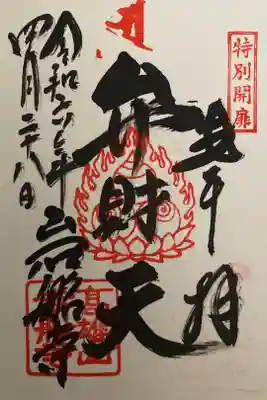 特別開扉
奉拝
弁財天
岩船寺
令和六年
四月二十八日